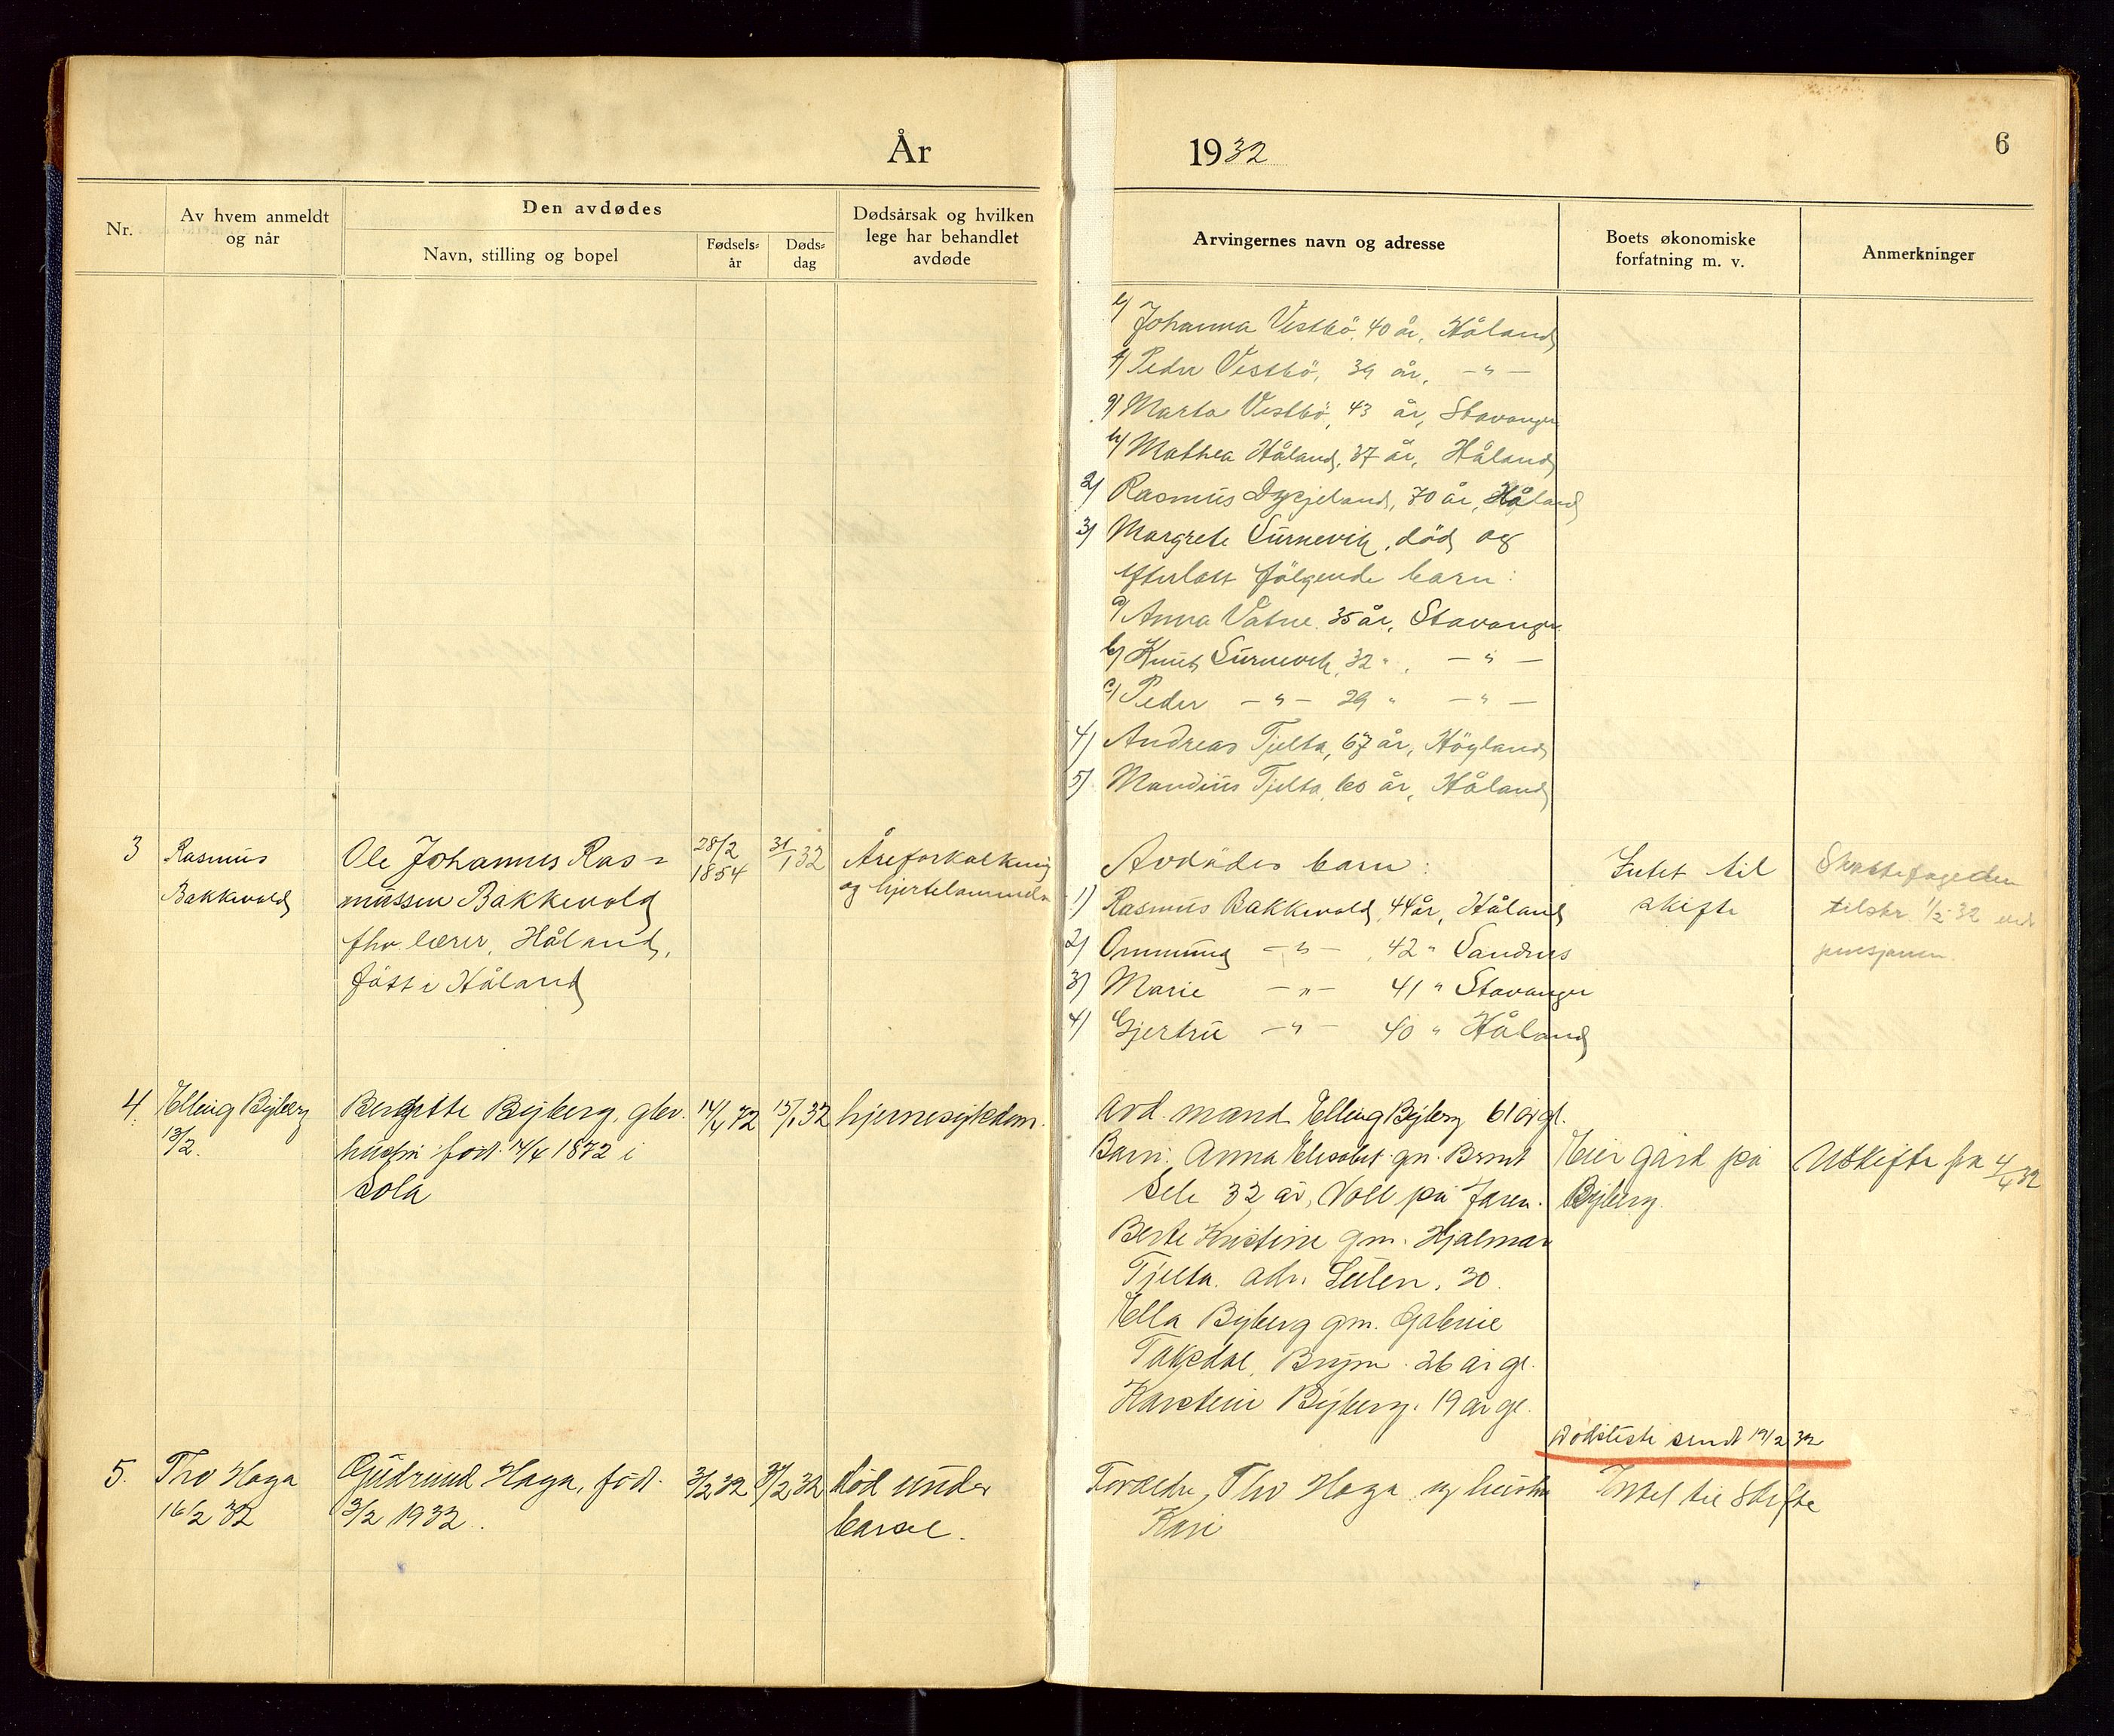 År
1932
6
Nr.
Av hvem anmeldt
og når
Den avdødes
Navn, stilling og bopel
Fødsels-
år
Døds-
dag
Dødsårsak og hvilken
lege har behandlet
avdøde
Arvingernes navn og adresse
Boets økonomiske
forfatning m. v.
Anmerkninger
e) Johanna Vestbö, 40 år, Håland
f) Peder Vestbö, 39 år, — " —
g) Marta Vestbö, 43 år, Stavanger
h) Mathea Håland, 37 år, Håland
2) Rasmus Dysjeland, 70 år, Håland
3) Margrete Surnevik, död og
efterlatt fölgende barn:
a) Anna Vatne 35 år, Stavanger
b) Knut Surnevik, 32 " — " —
c) Peder — " — 29 " — " —
4) Andreas Tjelta, 67 år, Höyland
5) Maudius Tjelta, 60 år, Håland
3
Rasmus
Bakkevold
Ole Johannes Ras=
mussen Bakkevold
fhv. lærer, Håland,
född i Håland
28/2
1854
31/1 32
Åreforkalkning
og hjertelammelse
Avdödes barn:
1) Rasmus Bakkevold, 44 år, Håland
2) Ommund — " — 42 " Sandnes
3) Marie — " — 41 " Stavanger
4) Gjertru — " — 40 " Håland
Intet til
skifte
Skattefogeden
tilskr. 1/2 32 ved
pensjonen.
4.
Elling Byberg
13/2.
Bergitte Byberg,
hustru född. 14/4 1872 i
Sola
14/4 72
15/1 32
hjernesykdom.
Avd. mand Elling Byberg 61 år gl.
Barn: Anna Elisabet gm. Bernt
Sele 32 år, Voll på Jæren.
Berte Kristine gm. Hjalmar
Tjelta. adr. 30.
Ella Byberg gm. Gabriel
Taksdal, Bryne. 26 år gl.
Karsten Byberg. 19 år gl.
Eier gård på
Byberg.
Utskifte fra 4/4 32
Dödsliste sendt 19/2 32
5.
Tho Haga
16/2 32
Gudrund Haga, föd.
3/2 1932.
3/2 32
3/2 32
död under
barsel.
Foreldre, Tho Haga og hustru
Kari
Intet til Skifte